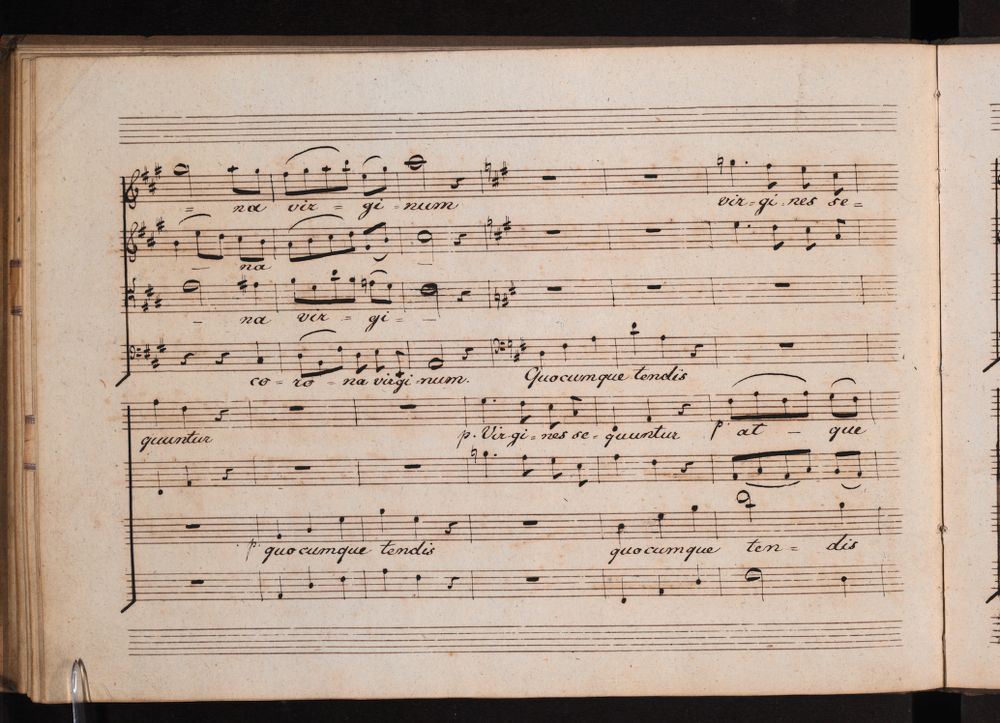 = na vir = gi = num vir = gi = nes se =
– na –
– na vir = gi = –
co = ro = na virgi num. Quocumque tendis
quuntur p. Vir gi = nes se = quuntur p at – que
p. quocumque tendis quocumque ten = dis